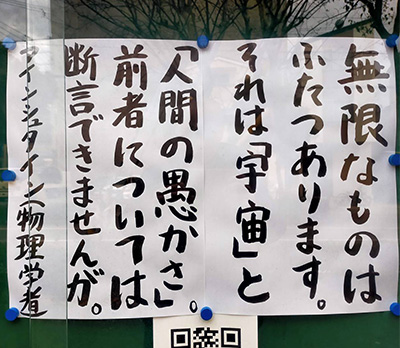 無限なものは
ふたつあります。
それは「宇宙」と
「人間の愚かさ」。
前者については
断言できませんが。
アインシュタイン(物理学者